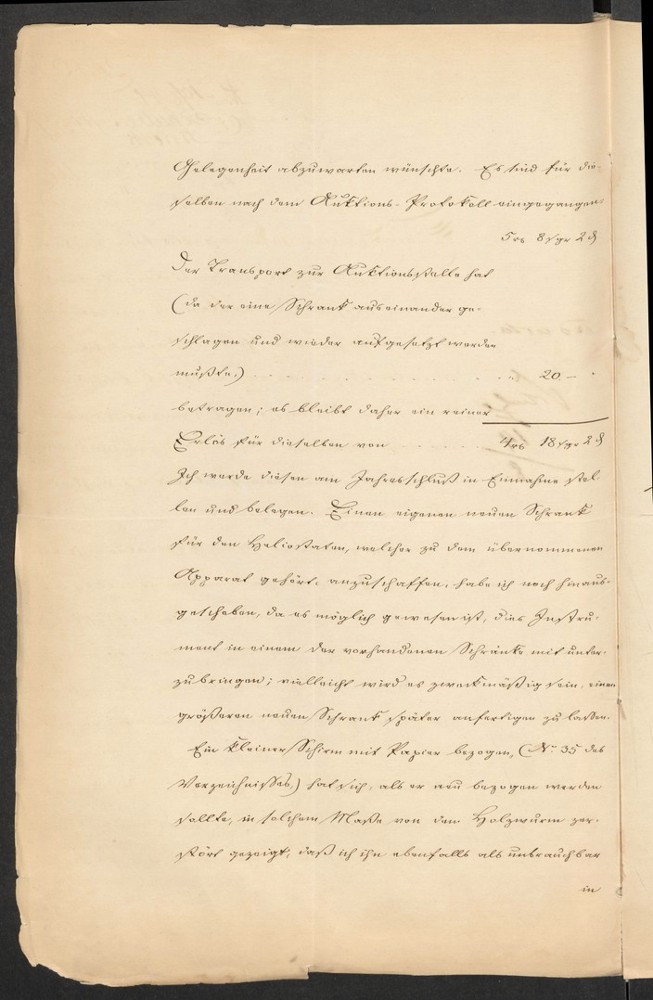 Gelegenheit abzuwarten wünschte. Es sind für die-
selben nach dem Auktions-Protokoll eingegangen
5 rs 8 sgr 2 ₰
Der Transport zur Auktionsstelle hat
(da der eine Schrank auseinander ge-
schlagen und wieder aufgesetzt werden
mußte) . . . . . . . . . . . 20 –
betragen; es bleibt daher ein reiner
Erlös für dieselben von . . . . . 4 rs 18 sgr 2 ₰
Ich werde diesen am Jahresschluß in Einnahme stel
len und belegen. Einen eigenen neuen Schrank
für den Heliostaten, welcher zu dem übernommenen
Apparat gehört, anzuschaffen, habe ich noch hinaus-
geschoben, da es möglich gewesen ist, dies Instru-
ment in einem der vorhandenen Schränke mit unter-
zubringen; vielleicht wird es zweckmäßig sein, einen
größeren neuen Schrank später anfertigen zu lassen.
Ein kleiner Schirm mit Papier bezogen, (No 35 des
Verzeichnisses) hat sich, als er neu bezogen werden
sollte, in solchem Maße von dem Holzwurm zer-
stört gezeigt, daß ich ihn ebenfalls als unbrauchbar
in